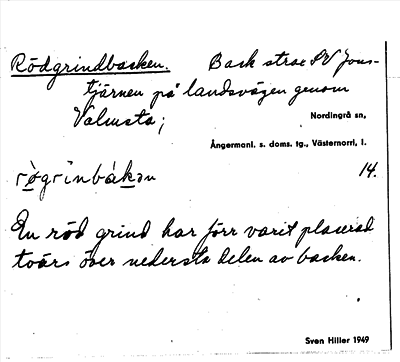 Rödgrindbacken. Back strax SV Jons-
tjärnen på landsvägen genom
Valmsta;
Nordingrå sn,
Ångermanl. s. doms. tg., Västernorrl. l.
14.
En röd grind har förr varit placerad
tvärs över nedersta delen av backen.
Sven Hiller 1949